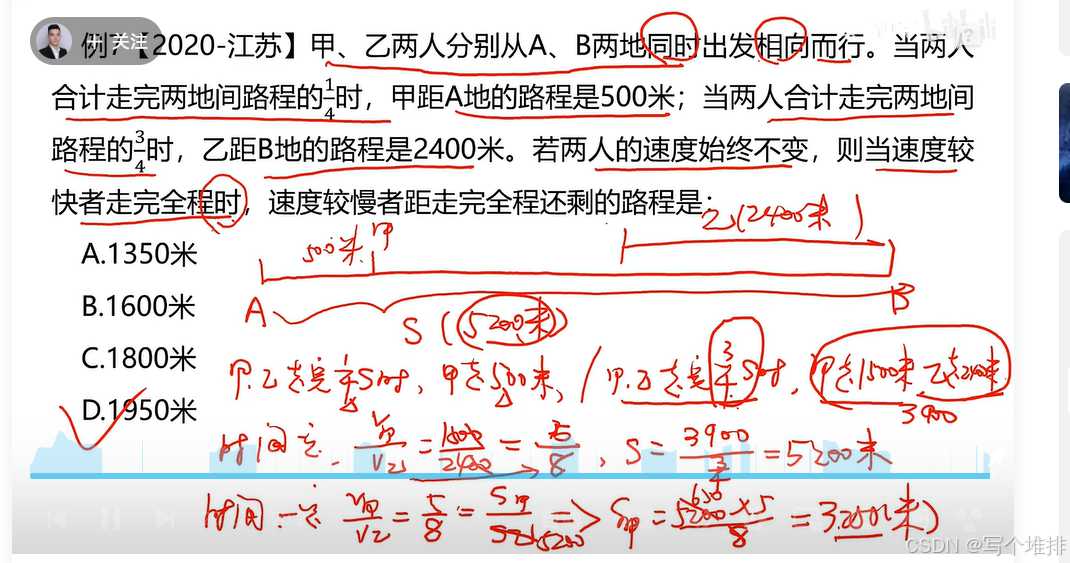 + 关注
例7【2020-江苏】甲、乙两人分别从A、B两地同时出发相向而行。当两人
合计走完两地间路程的1/4时，甲距A地的路程是500米；当两人合计走完两地间
路程的3/4时，乙距B地的路程是2400米。若两人的速度始终不变，则当速度较
快者走完全程时，速度较慢者距走完全程还剩的路程是：
A.1350米
B.1600米
C.1800米
D.1950米
乙(2400米)
500米 甲
A B
S (5200米)
甲.乙走完1/4S时，甲走500米，/甲.乙走完3/4S时，甲走1500米 乙走2400米
3900
时间定. V甲/V乙=1500/2400=5/8，S=3900/(3/4)=5200米
时间一定 V甲/V乙=5/8=S甲/S乙 5200 => S甲=5200×5/8=3250米
650
CSDN @写个堆排